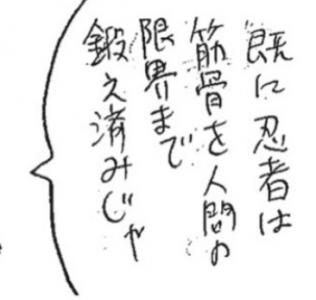 既に忍者は
筋骨を人間の
限界まで
鍛え済みじゃ